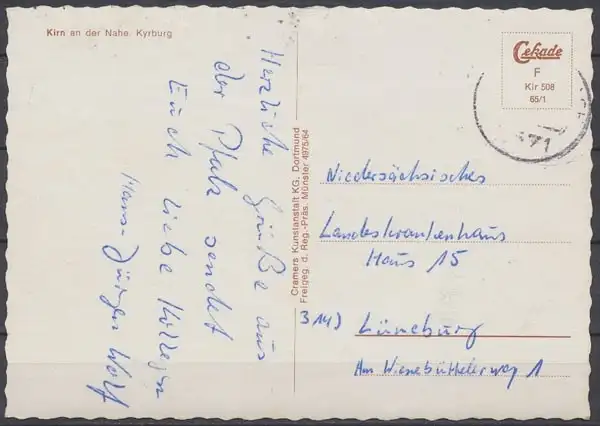 Kirn an der Nahe. Kyrburg
Herzliche Grüße aus
der Pfalz sendet
Euch liebe Kollegen
Hans-Jürgen Wolf
Cramers Kunstanstalt KG. Dortmund
Freigeg. d. Reg.-Präs. Münster 4975/64
Cekade
F
Kir 508
65/1
71
Niedersächsisches
Landeskrankenhaus
Haus 15
314) Lüneburg
Am Wienebüttelerweg 1